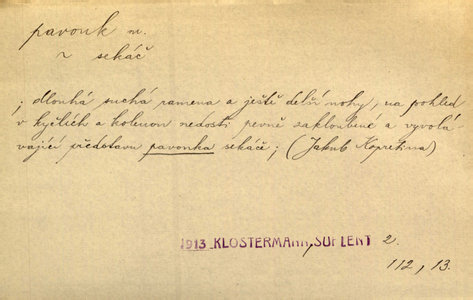 pavouk m.
~ sekáč
; dlouhá suchá ramena a ještě delší nohy, na pohled
v kyčlích a kolenou nedosti pevně zakloubené a vyvolá-
vající představu pavouka sekáče; (Jakub Kopretina)
1913 KLOSTERMANN, SUPLENT 2.
112, 13.